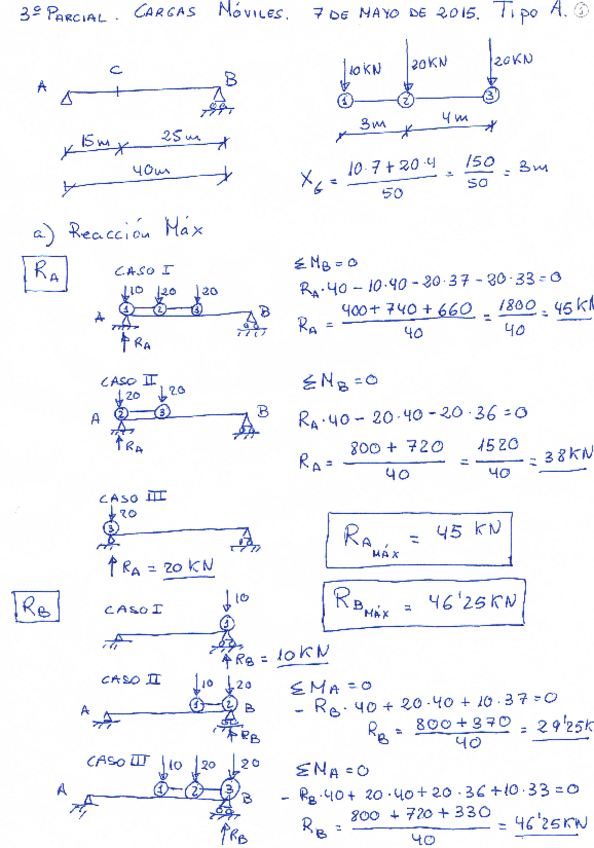 3º PARCIAL. CARGAS MÓVILES. 7 DE MAYO DE 2015. TIPO A. 1
A C B
15m 25m
40m
10KN 20KN 20KN
1 2 3
3m 4m
X_G = (10·7+20·4)/50 = 150/50 = 3m
a) Reacción Máx
R_A
CASO I
↓10 ↓20 ↓20
A 1 2 3 B
↑R_A
ΣM_B=0
R_A·40 - 10·40 - 20·37 - 20·33 = 0
R_A = (400+740+660)/40 = 1800/40 = 45KN
CASO II
↓20 ↓20
A 2 3 B
↑R_A
ΣM_B=0
R_A·40 - 20·40 - 20·36 = 0
R_A = (800+720)/40 = 1520/40 = 38KN
CASO III
↓20
3
↑R_A = 20KN
R_A MÁX = 45 KN
R_B MÁX = 46'25KN
R_B
CASO I
↓10
1
↑R_B = 10KN
CASO II
↓10 ↓20
A 1 2 B
↑R_B
ΣM_A=0
- R_B·40 + 20·40 + 10·37 = 0
R_B = (800+370)/40 = 29'25K
CASO III
↓10 ↓20 ↓20
A 1 2 3 B
↑R_B
ΣM_A=0
- R_B·40 + 20·40 + 20·36 + 10·33 = 0
R_B = (800+720+330)/40 = 46'25KN